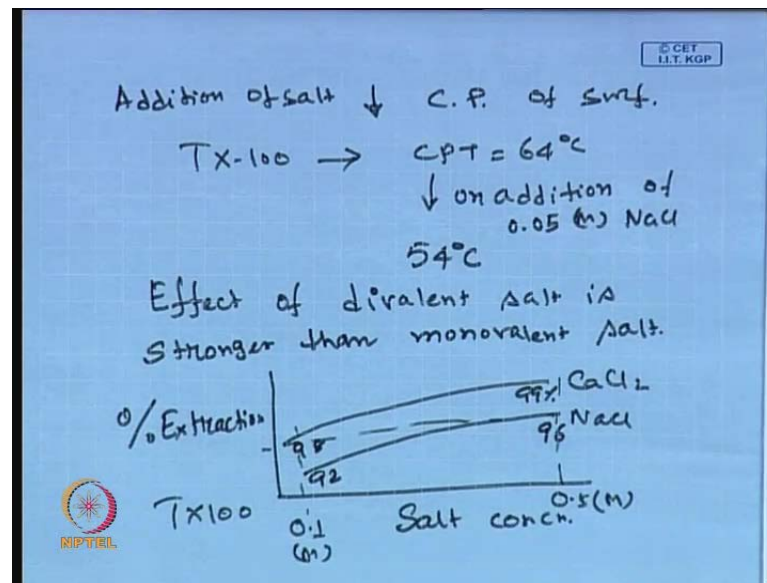 © CET
I.I.T. KGP
Addition of salt ↓ C.P. of surf.
TX-100 → CPT = 64°C
↓ on addition of
0.05 (M) NaCl
54°C
Effect of divalent salt is
stronger than monovalent salt.
% Extraction
99% CaCl2
96 NaCl
98
92
TX100
0.1
(M)
Salt concn.
0.5 (M)
NPTEL